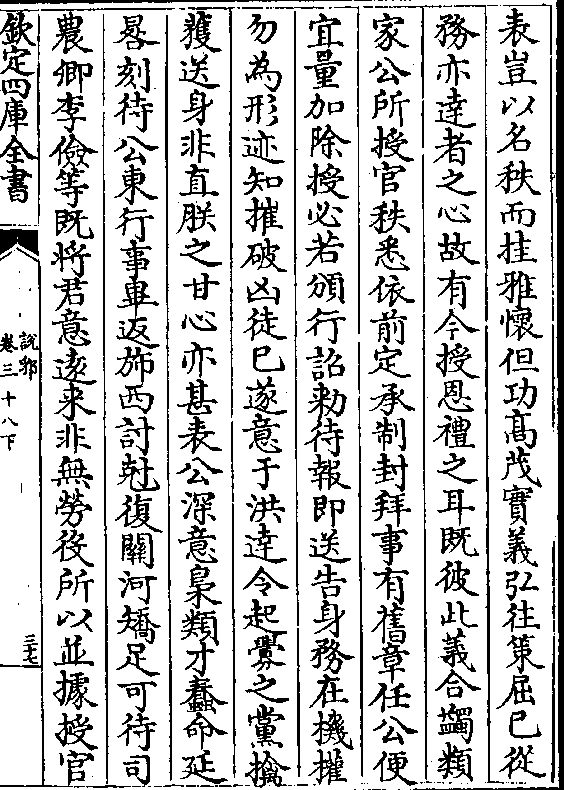 表豈以名秩而挂雅懷但功髙茂實義弘往策屈已從
務亦達者之心故有今授恩禮之耳既彼此義合蠲類
家公所授官秩悉依前定承制封拜事有舊章任公便
宜量加除授必若頒行詔勅待報即送告身務在機權
勿為形迹知摧破凶徒已遂意于洪達令起釁之黨擒
獲送身非直朕之甘心亦甚表公深意梟類才蠢命延
晷刻待公東行事畢返斾西討尅復關河矯足可待司
農卿李儉等既將君意逺来非無勞役所以並據授官
欽定四庫全書
說郛
卷三十八下
三七